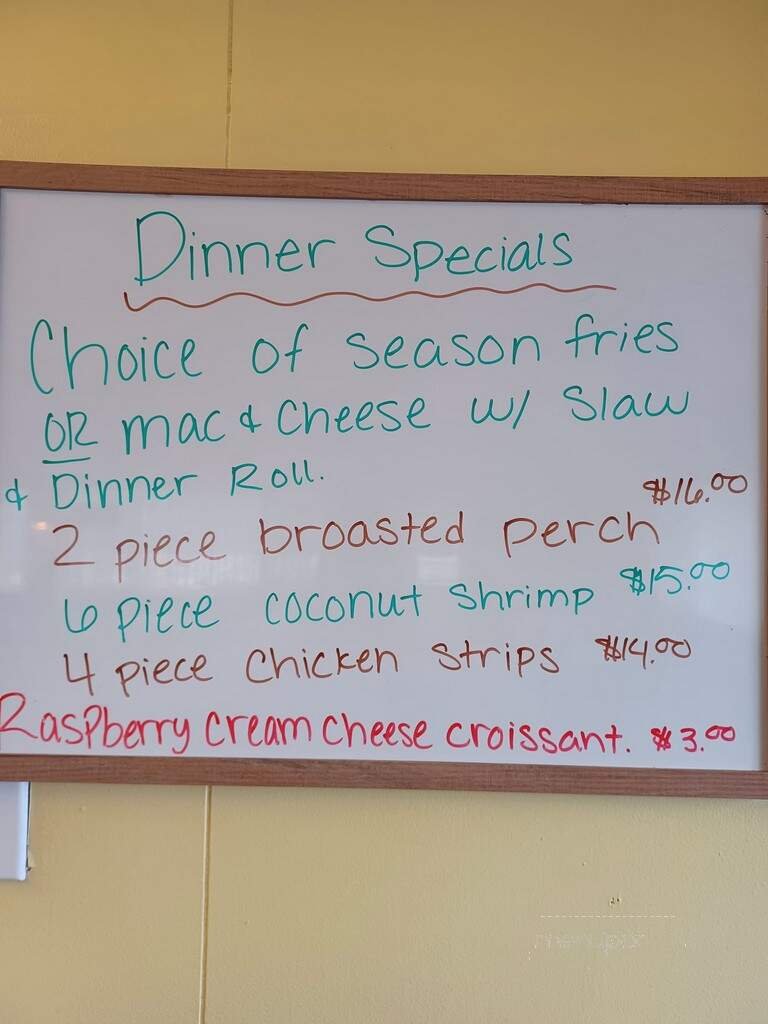 Dinner Specials
Choice of season fries
OR mac & cheese w/ Slaw
& Dinner Roll.
2 piece broasted perch $16.00
6 piece coconut shrimp $15.00
4 piece chicken strips $14.00
Raspberry cream cheese croissant. $3.00
menupix